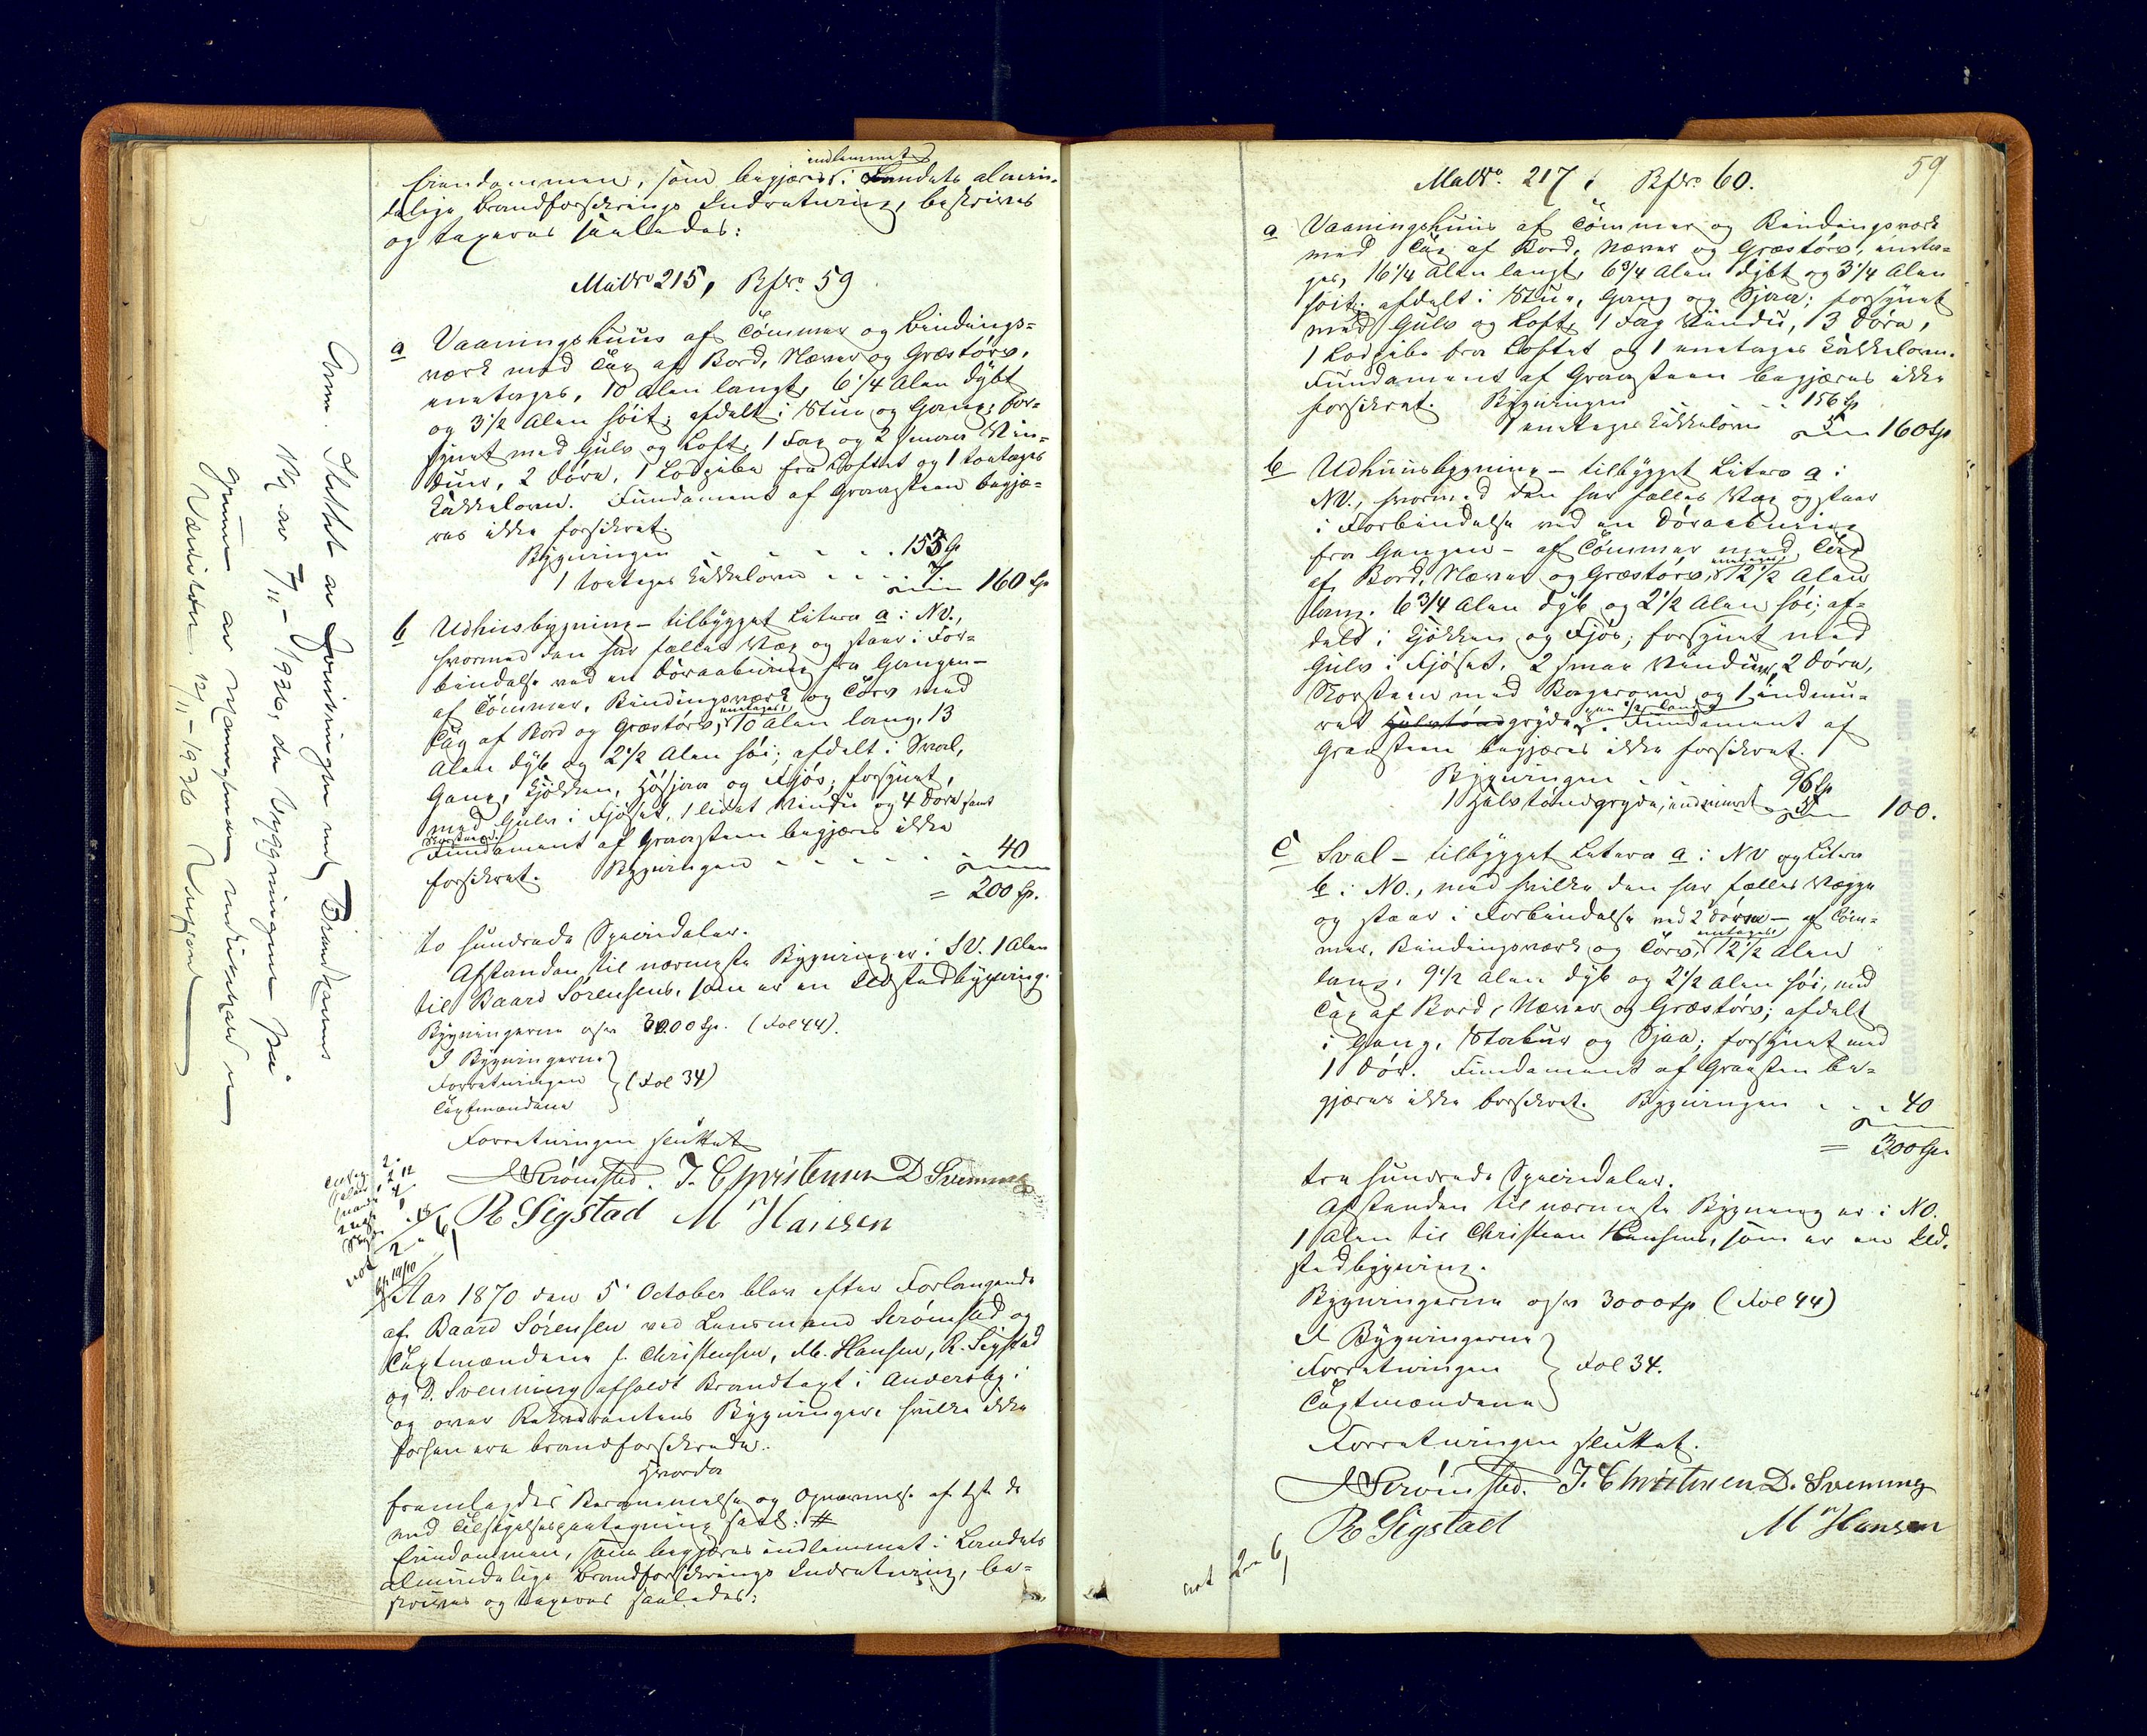 indlemmet
Eiendommen, som begjæres i Landets almin-
delige Brandforsikrings Indretning, beskrives
og taxeres saaledes:
Matr No 215, Bfr No 59
a Vaaningshuus af Tømmer og Bindings-
værk med Tag af Bord, Næver og Græstørv,
eenetages, 10 Alen langt, 6 1/4 Alen dybt
og 3 1/2 Alen høit; afdelt i Stue og Gang; for-
synet med Gulv og Loft, 1 Fag og 2 smaa Vin-
duer, 2 Døre, 1 Lodpibe fra Loftet og 1 toetages
Kakkelovn. Fundament af Graasteen begjæ-
res ikke forsikret.
Bygningen - - - - 153 Sp
1 toetages Kakkelovn - - - 7 160 Sp
b Udhuusbygning - tilbygget Litera a i NV.,
hvormed den har fælles Væg og staar i For-
bindelse ved en Døraabning fra Gangen -
af Tømmer, Bindingsværk og Tørv med
Tag af Bord og Græstørv, eenetages, 10 Alen lang, 13
Alen dyb og 2 1/2 Alen høi; afdelt i Sval,
Gang, Kjøkken, Høsjaa og Fjøs; forsynet
med Gulv i Fjøset, 1 lidet Vindu og 4 Døre samt
Skorsteen.
Fundament af Graasteen begjæres ikke
forsikret. Bygningen - - - - - 40
= 200 Sp.
to hundrede Speciedaler.
Afstanden til nærmeste Bygning er i SV. 1 Alen
til Baard Sørensens, som er en Ildstedbygning.
Bygningerne osv 3000 Sp. (Fol 44).
I Bygningerne
Forretningen (Fol 34)
Taxtmændene
Forretningen sluttet
Strømsted. J. Christensen D Svenning
R Sigstad M Hansen
Aar 1870 den 5 October blev efter Forlangende
af Baard Sørensen ved Lensmand Strømsted og
Taxtmændene J. Christensen, M. Hansen, R. Sigstad
og D. Svenning afholdt Brandtaxt i Andersby i
og over Rekvirentens Bygninger, hvilke ikke
forhen ere brandforsikrede.
Hvorda
fremlagdes Berammelse og Opnævnelse af 1ste ds
med Tilsigelsespaategning saal: #
Eiendommen, som begjæres indlemmet i Landets
almindelige Brandforsikrings Indretning, be-
skrives og taxeres saaledes:
Anm. Slettet av Forsikringen med Brandkassens
av 7/11 - 1936, da bygningene på
grunn av
Vardø 12/11 - 1936
59
Matr No 217, Bfr No 60.
a Vaaningshuus af Tømmer og Bindingsværk
med Tag af Bord, Næver og Græstørv, eeneta-
ges, 16 1/4 Alen langt, 6 3/4 Alen dybt og 3 1/4 Alen
høit; afdelt i Stue, Gang og Sjaa; forsynet
med Gulv og Loft, 1 Fag Vindu, 3 Døre,
1 Lodpibe fra Loftet og 1 eenetages Kakkelovn.
Fundament af Graasteen begjæres ikke
forsikret. Bygningen - - - 156 Sp
1 eenetages Kakkelovn 160 Sp
b Udhuusbygning - tilbygget Litera a i
NV., hvormed den har fælles Væg og staar
i Forbindelse ved en Døraabning
fra Gangen - af Tømmer med Tag
af Bord, Næver og Græstørv, eenetages, 12 1/2 Alen
lang, 6 3/4 Alen dyb og 2 1/2 Alen høi; af-
delt i Kjøkken og Fjøs; forsynet med
Gulv i Fjøset, 2 smaa Vinduer, 2 Døre,
Skorsteen med Bagerovn og 1 indmu-
ret Halvtønde gryde. Fundament af
Graasteen begjæres ikke forsikret.
Bygningen - - 96 Sp
1 Halvtøndegryde, indmuret 100.
c Sval - tilbygget Litera a i NV og Litera
b i NO., med hvilke den har fælles Vægge
og staar i Forbindelse ved 2 Døre - af Tøm-
mer, Bindingsværk og Tørv, eenetages, 12 1/2 Alen
lang, 9 1/2 Alen dyb og 2 1/2 Alen høi, med
Tag af Bord, Næver og Græstørv; afdelt
i Gang, Stabur og Sjaa; forsynet med
1 Dør. Fundament af Graasten be-
gjæres ikke forsikret. Bygningen - - - 40
= 300 Sp.
tre hundrede Speciedaler.
Afstanden til nærmeste Bygning er i NO.
1 Alen til Christian Hansens, som er en Ild-
stedbygning.
Bygningerne osv 3000 Sp (Fol 44)
I Bygningerne
Forretningen Fol 34.
Taxtmændene
Forretningen sluttet.
Strømsted. J. Christensen D. Svenning
R Sigstad M Hansen